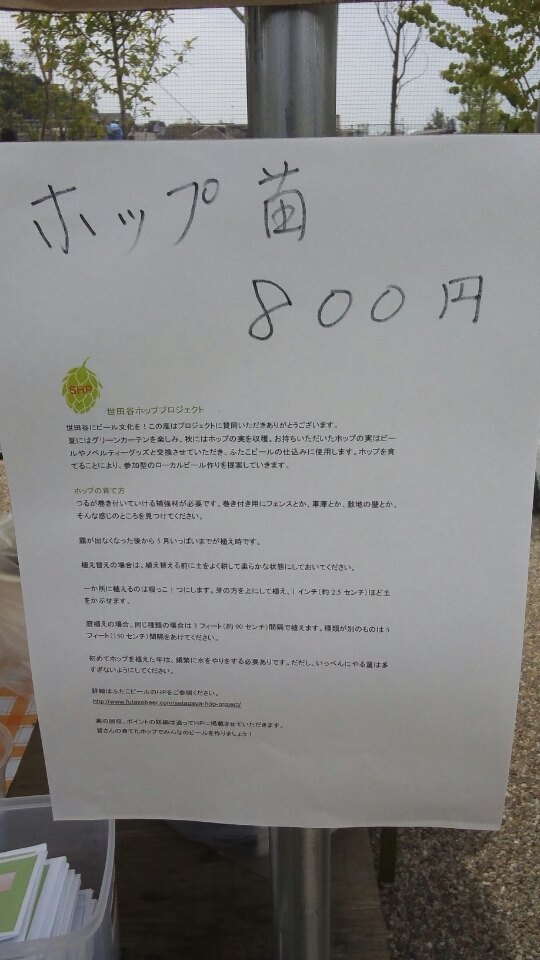 ホップ 苗
800円
SHP
世田谷ホッププロジェクト
世田谷にビール文化を！この度はプロジェクトに賛同いただきありがとうございます。
夏にはグリーンカーテンを楽しみ、秋にはホップの実を収穫。お持ちいただいたホップの実はビー
ルやノベルティーグッズと交換させていただき、ふたこビールの仕込みに使用します。ホップを育
てることにより、参加型のローカルビール作りを提案していきます。
ホップの育て方
つるが巻き付いていける補強材が必要です。巻き付き用にフェンスとか、車庫とか、敷地の壁とか、
そんな感じのところを見つけてください。
霜が出なくなった後から5月いっぱいまでが植え時です。
植え替えの場合は、植え替える前に土をよく耕して柔らかな状態にしておいてください。
一か所に植えるのは根っこ1つにします。芽の方を上にして植え、1インチ(約2.5センチ)ほど土
をかぶせます。
直植えの場合、同じ種類の場合は3フィート(約90センチ)間隔で植えます。種類が別のものは5
フィート(150センチ)間隔をあけてください。
初めてホップを植えた年は、頻繁に水をやりをする必要ありです。だだし、いっぺんにやる量は多
すぎないようにしてください。
詳細はふたこビールのHPをご参照ください。
http://www.futakobeer.com/setagaya-hop-project/
実の回収、ポイントの詳細は追ってHPに掲載させていただきます。
皆さんの育てたホップでみんなのビールを作りましょう！